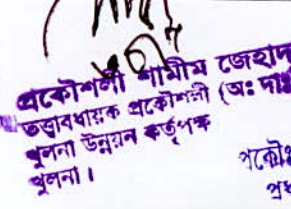 প্রকৌশলী শামীম জেহাদ
তত্ত্বাবধায়ক প্রকৌশলী (অঃ দাঃ
খুলনা উন্নয়ন কর্তৃপক্ষ
খুলনা।
প্রকৌঃ
প্রধ